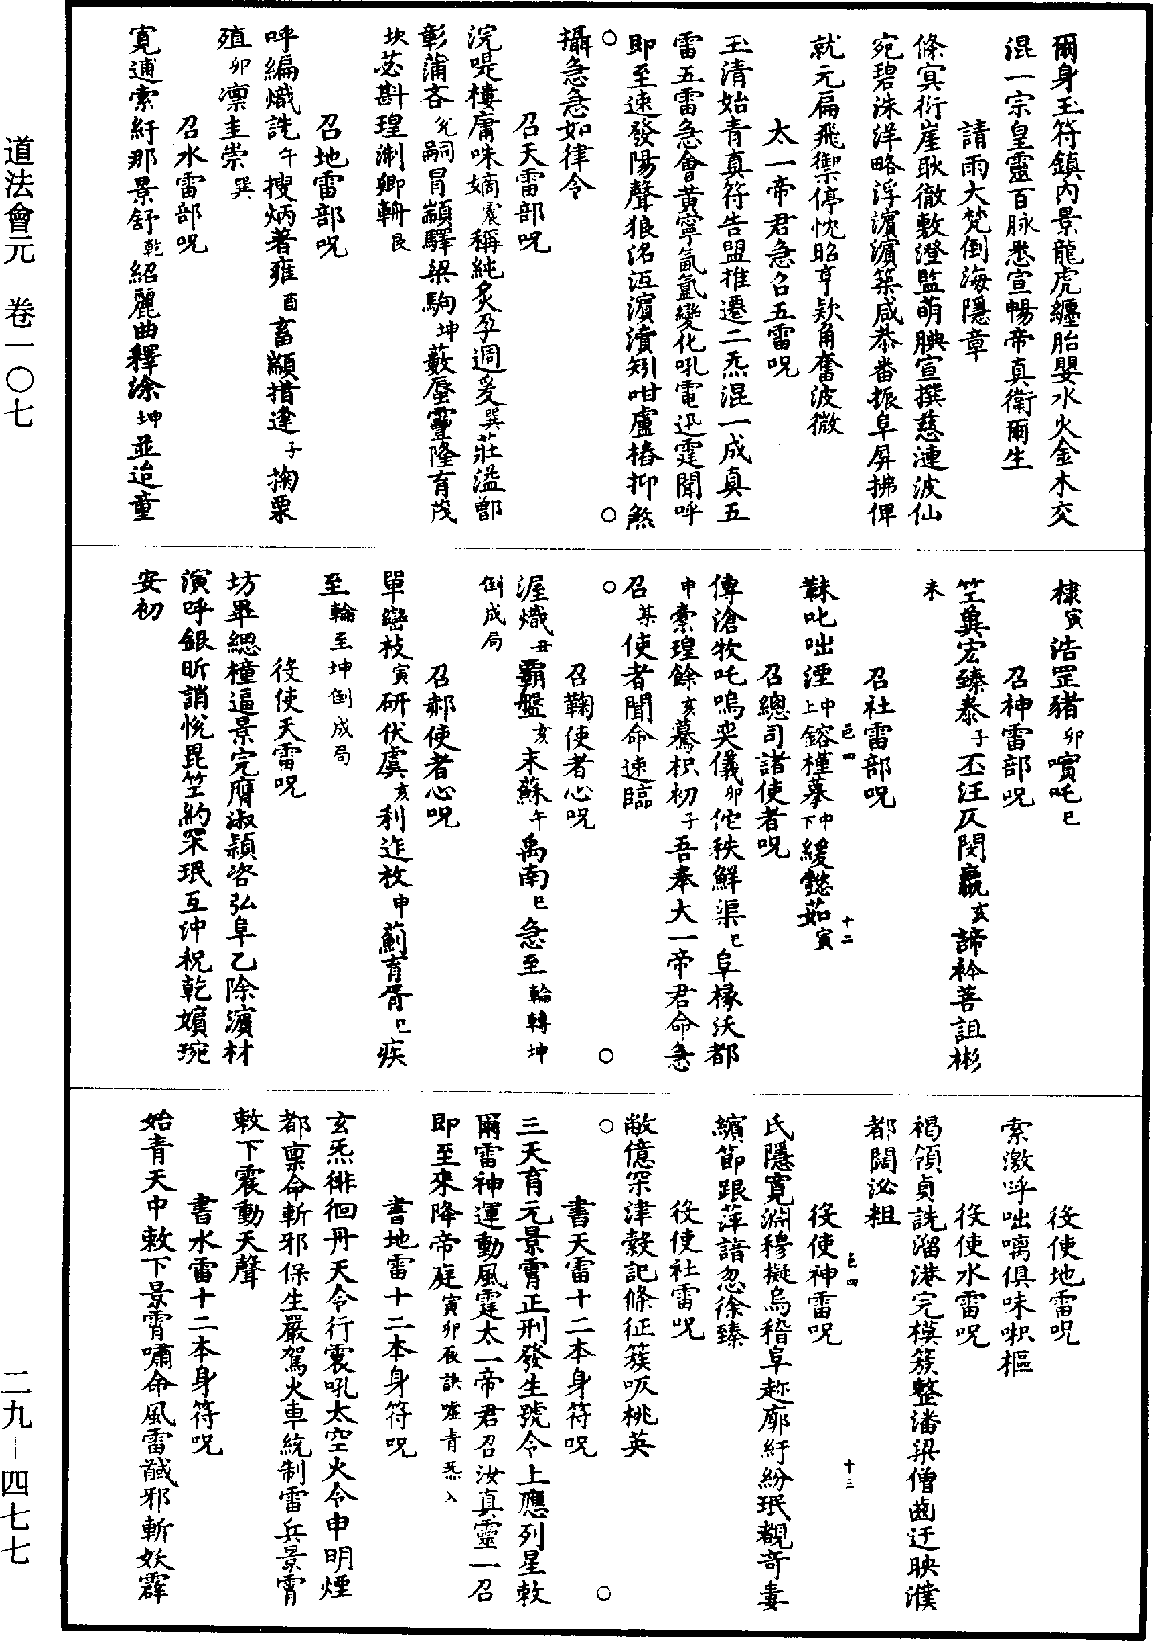 爾身玉符鎮內景龍虎纏胎嬰水火金木交
混一宗皇靈百脉悉宣暢帝真衛爾生
請雨大梵倒海隱章
條冥衍崖耿徹敷澄監萌腆宣撰慈漣波仙
宛碧洙洋略浮濵濵築咸恭番振阜屏拂俾
就元扁飛禦停忱昭亨欵角奮波微
太一帝君急召五雷呪
玉清始青真符告盟推遷二炁混一成真五
雷五雷急會黃寧氤氳變化吼電迅霆聞呼
即至速發陽聲狼洺沍濵瀆矧咁盧樁抑煞
攝急急如律令
召天雷部呪
浣喔樓庸咮嫡震稱純炙孕週爰巽莊溢鄫
彰蒲吝兊嗣冒顓驛梁駒坤藪蜃霻隆育茂
坎苾斟瑝淛卿輧艮
召地雷部呪
呼編熾詵午搜炳著雍酉畜顓措逢子掬栗
殖卯凛圭崇巽
召水雷部呪
寛逋索紆那景舒乾紹麗曲釋涂坤並迨童
棣寅浩罡豬卯嚬吒巳
召神雷部呪
笁冀宏臻泰子丕汪仄閔嬴亥諦衿菩詛彬
未
召社雷部呪
靺叱咄湮中上鎔槿摹中下緩懿茹寅
召總司諸使者呪
傳滄牧吒嗚奕儀卯佗秩鮮渠巳阜椽沃都
申橐瑝餘亥驀枳初子吾奉大一帝君命急
召某使者聞命速臨
召鞠使者心呪
渥熾丑霸盤亥末蘇午禹南巳急至輪轉坤
倒成局
召郝使者心呪
單巒枝寅研伏虞亥利迮枚申薊育胥巳疾
至輪至坤倒成局
役使天雷呪
坊畢緦橦逼景完膺淑穎咨弘阜乙除濵材
演呼銀昕誚悅毘笁約罙珉互沖祝乾嬪琬
安初
役使地雷呪
索激呼咄噧俱味呮樞
役使水雷呪
褐領貞詵溜港完模簇整潘梁僧鹵迂映濮
都闊泌粗
役使神雷呪
氏隱寛淵穆擬烏稽阜趂廓紆紛珉覩奇妻
繽節跟萍諳忽徐臻
役使社雷呪
敝億罙津穀記條征簇吸桃英
書天雷十二本身符呪
三天育元景霄正刑發生號令上應列星敕
爾雷神運動風霆太一帝君召汝真靈一召
即至來降帝庭寅卯辰訣噓青炁入
書地雷十二本身符呪
玄炁徘徊丹天令行震吼太空火令申明煙
都稟命斬邪保生嚴駕火車統制雷兵景霄
敕下震動天聲
書水雷十二本身符呪
始青天中敕下景霄嘯命風雷馘邪斬妖霹
道法會元 卷一〇七
二九—四七七